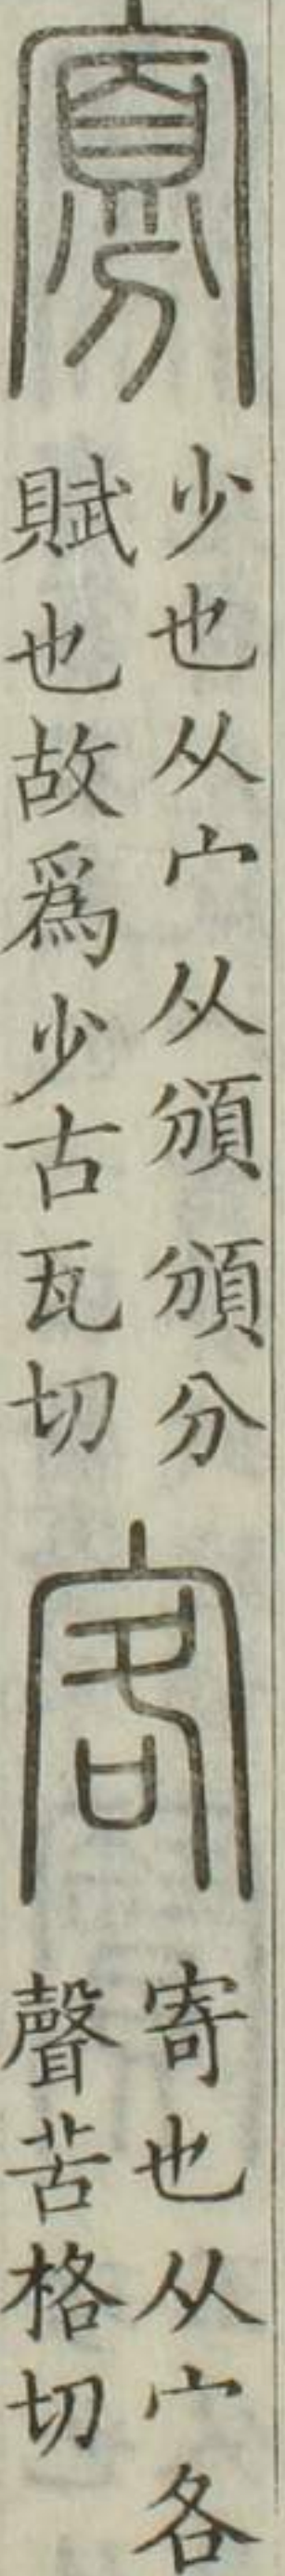 寡
少也从宀从頒頒分
賦也故爲少古瓦切
客
寄也从宀各
聲苦格切